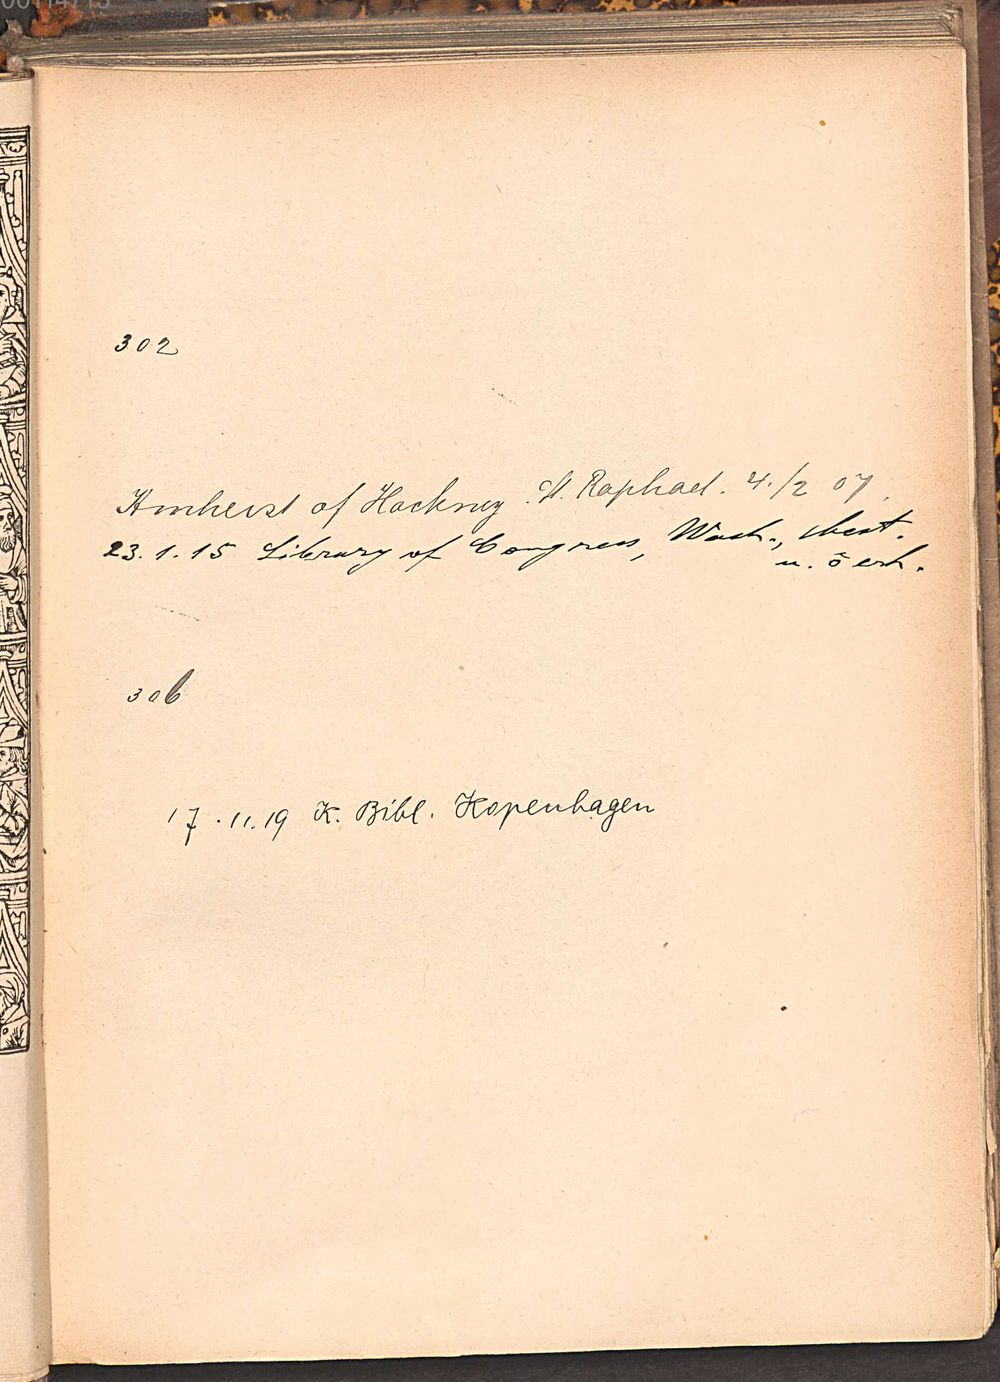 302
Amherst of Hackney. St. Raphael. 4./2 07.
23.1.15 Library of Congress, Wash., best.
u. õ erh.
306
17.11.19 K. Bibl. Kopenhagen